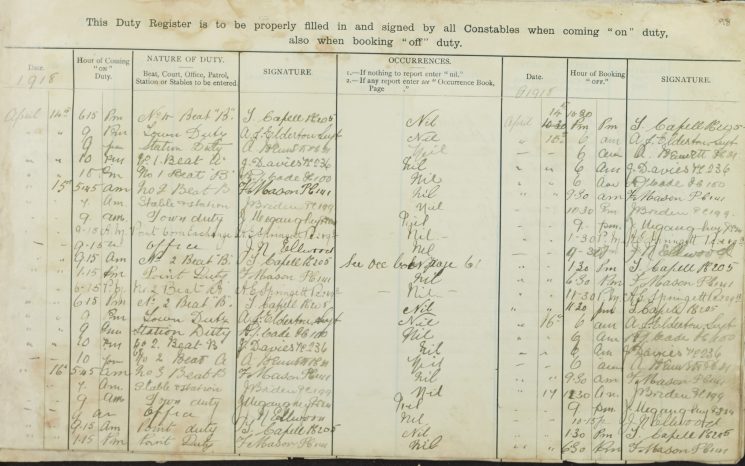 98
This Duty Register is to be properly filled in and signed by all Constables when coming "on" duty,
also when booking "off" duty.
Date. Hour of Coming "ON" Duty. NATURE OF DUTY. Beat, Court, Office, Patrol, Station or Stables to be entered. SIGNATURE OCCURRENCES. 1.—If nothing to report enter "nil." 2.—If any report enter see "Occurrence Book, Page ." Date. Hour of Booking "OFF." SIGNATURE.
1918 1918
April 14 6.15 Pm No 4 Beat "B". S. Capell Pc 205 Nil April 14 10.30 Pm S. Capell Pc 205
" " 9 Pm Town Duty A J Elderton Nil 15 6 am A J Elderton
" " 9 pm Station Duty A Hewett Nil 6 am A. Hewett
" " 10 Pm 1 Beat A J Davies Pc 236 Nil 6 am J Davies Pc 236
" " 10 Pm No 1 Beat B Cade Pc 100 Nil 6 am Cade Pc 100
15 5.45 am No 2 Beat B F Mason Pc 141 Nil 9.30 am F Mason Pc 141
" " 7 am Stable & station J Borden Pc 199 Nil 10.30 Pm J Borden Pc 199
" " 9 am Town duty Nil 9 pm
" " Corn Exchange Springett Nil 1-30 Springett
" " 9-15 Office J. N. Ellwood Nil J N Ellwood
" " 9.15 am No 2 Beat B. S. Capell Pc 205 See occ book page 6 1.30 Pm S. Capell Pc 205
" " 1.15 Pm Point Duty F Mason Pc 141 Nil 6.30 Pm F Mason Pc 141
" " 5-15 P.m. No 2 Beat A Springett Nil 11-30 Pm Springett
" " 6.15 Pm No 2 Beat B. S. Capell Pc 205 Nil 11.20 pm S. Capell Pc 205
" " 9 Pm Town Duty A J Elderton Nil 16 6 am A J Elderton
" " 9 Pm Station Duty Cade Pc 100 Nil 6 am Cade Pc 100
" " 10 Pm No 2. Beat B J Davies Pc 236 Nil 6 am J Davies Pc 236
" " 10 pm No 2 Beat A A Hewett Nil 6 am A Hewett
16 5.45 am No 3 Beat B F Mason Pc 141 Nil 9.30 am F Mason Pc 141
" " 7 am Stable & station J Borden Pc 199 Nil 17 12.30 am J Borden Pc 199
" " 9 am Town duty Nil 9 pm
" " 9 am Office J. N Ellwood Nil 10-15 p J N Ellwood
" " 9.15 am Point duty S. Capell Pc 205 Nil 1.30 Pm S. Capell Pc 205
" " 1.15 Pm Point Duty F Mason Pc 141 Nil 6.30 Pm F Mason Pc 141